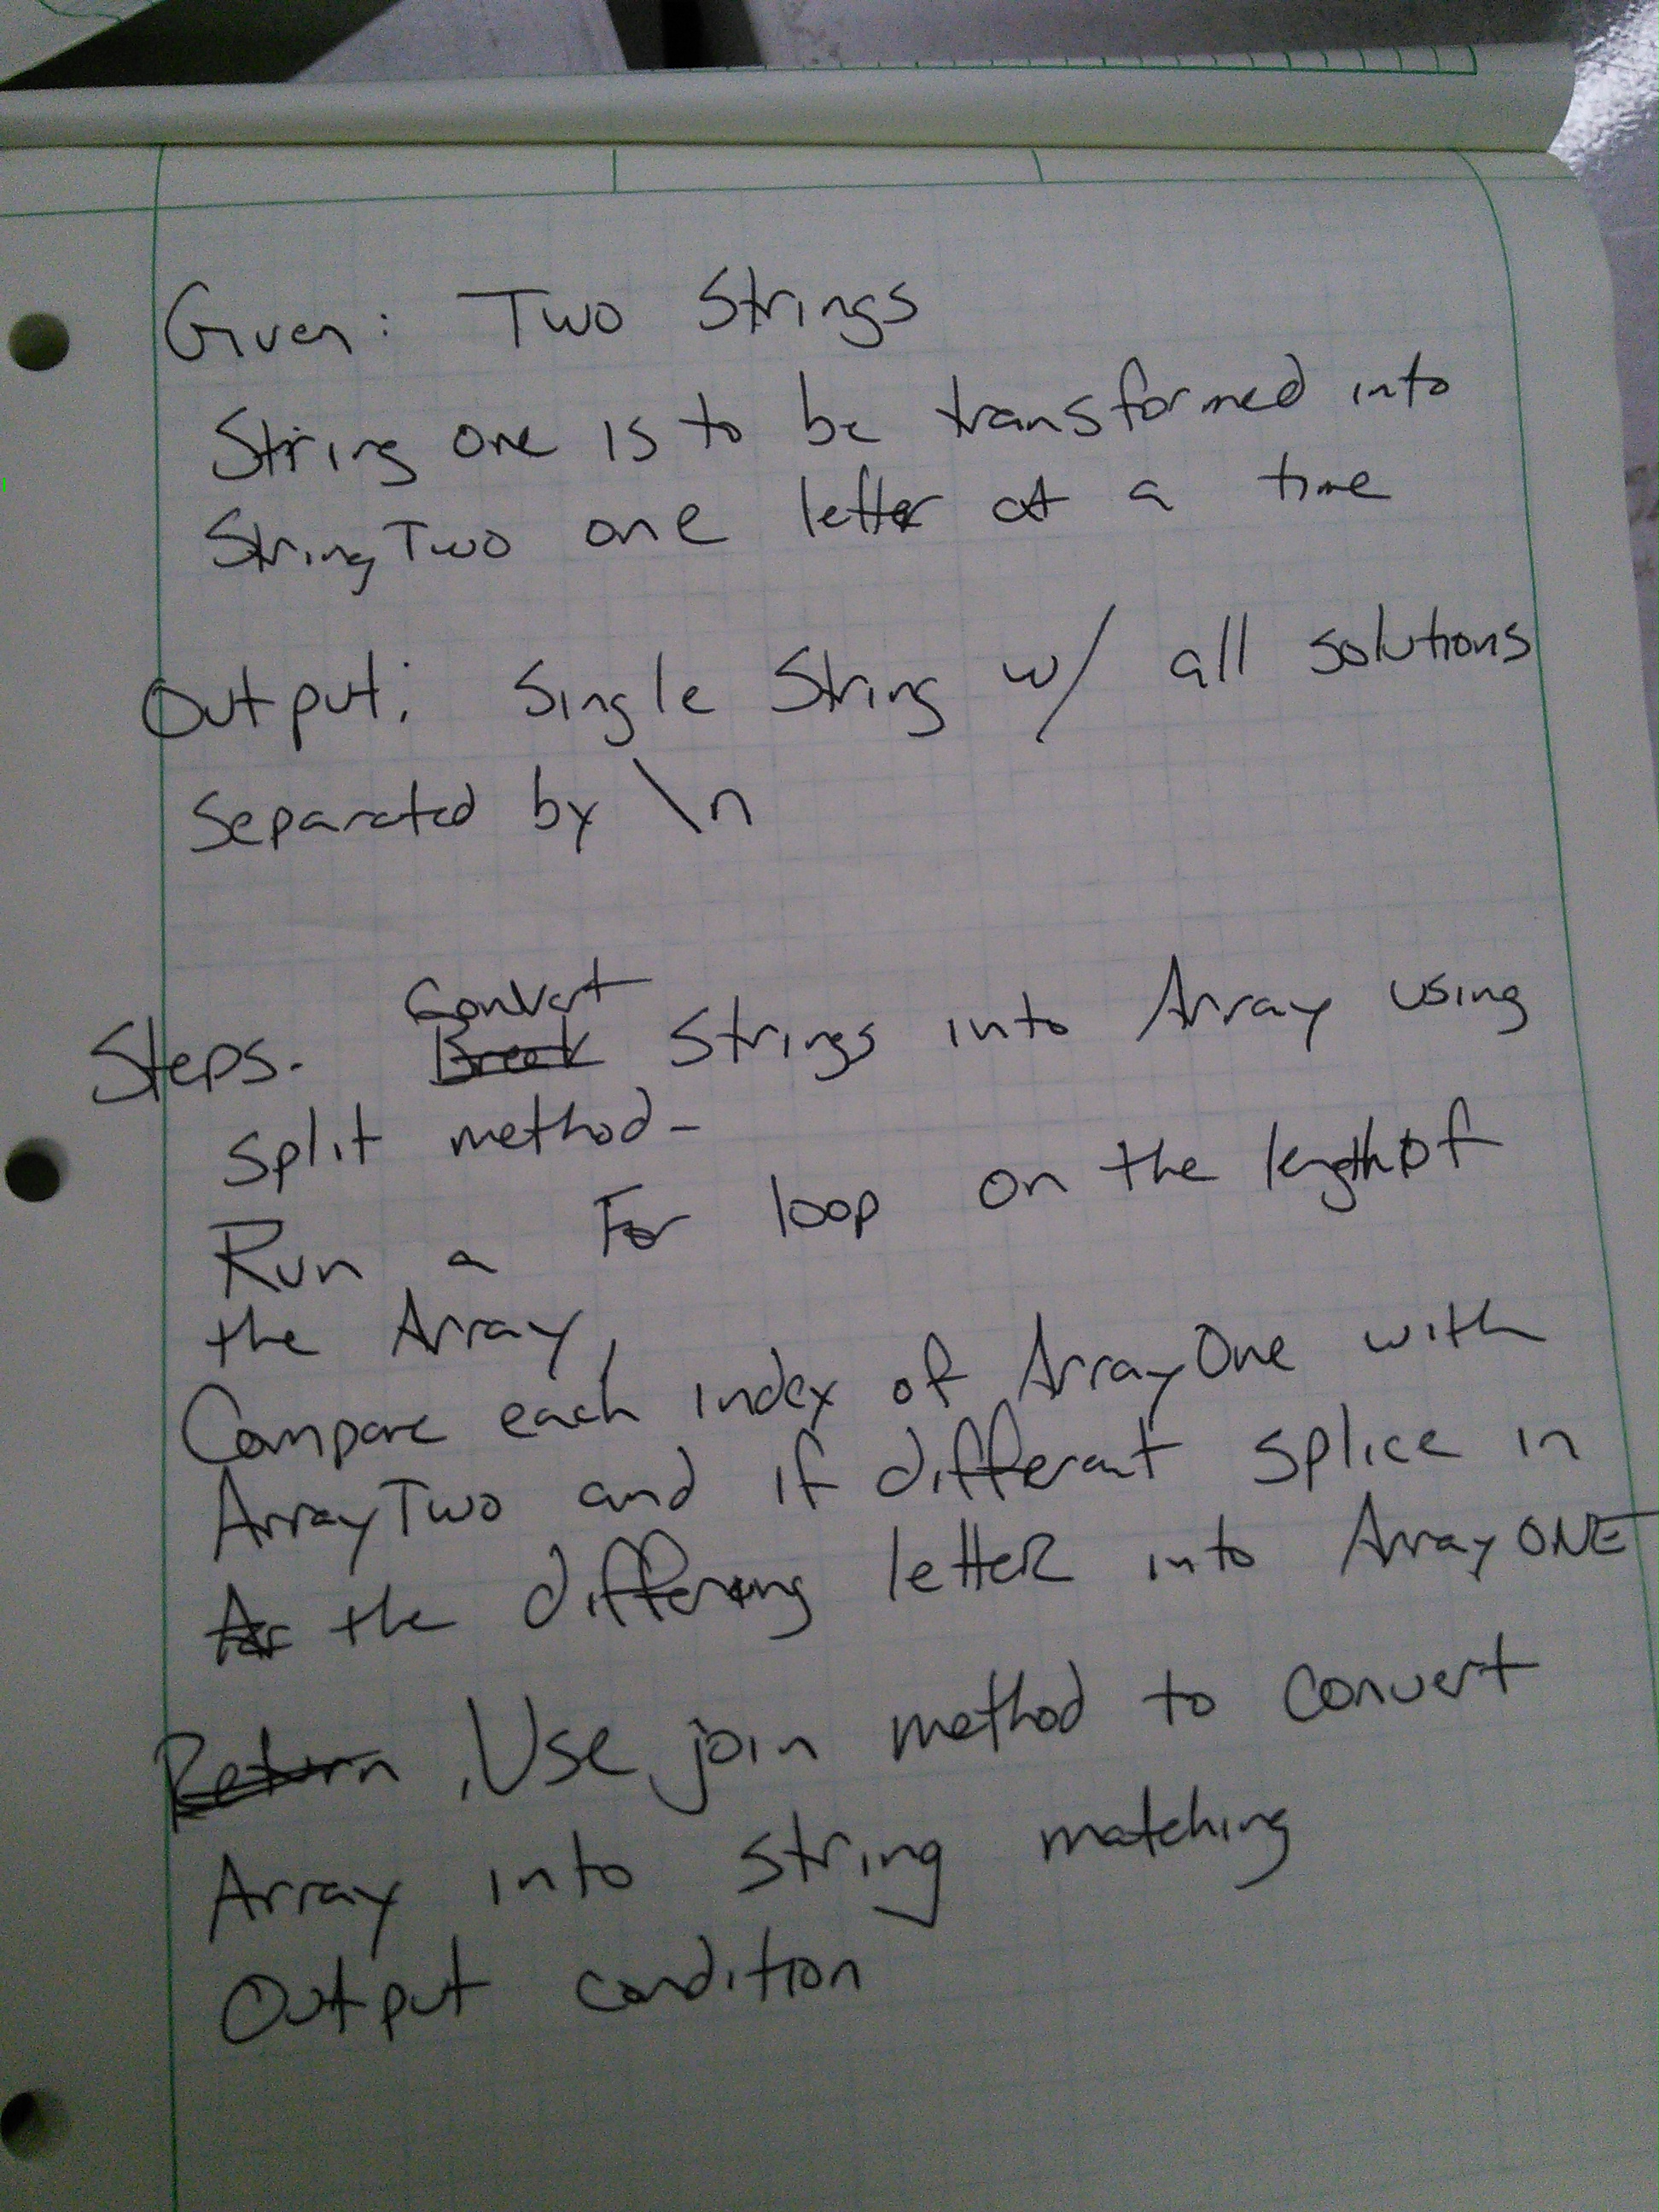 Given: Two Strings
String one is to be transformed into
StringTwo one letter at a time
Output: Single String w/ all solutions
Separated by \n
Convert
Steps. Break Strings into Array using
split method-
Run a For loop on the length of
the Array,
Compare each index of ArrayOne with
ArrayTwo and if different splice in
the differing letter into ArrayONE
Return. Use join method to convert
Array into string matching
Output condition